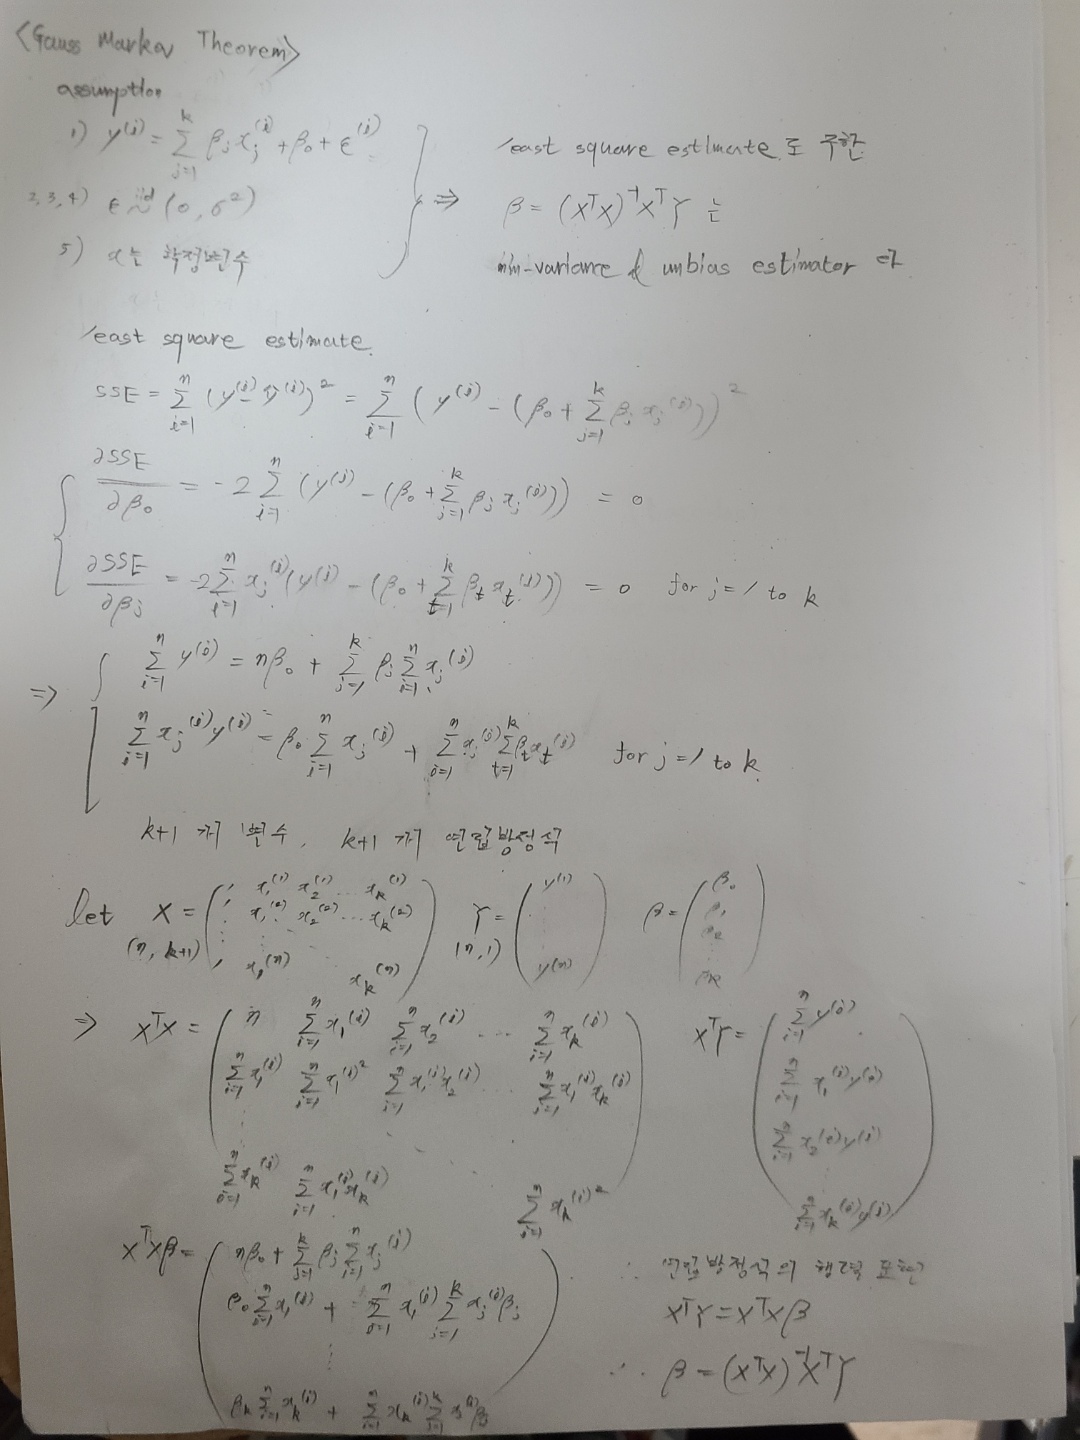 <Gauss Markov Theorem>
assumption
1) y^(i) = Σ_{j=1}^{k} β_j x_j^(i) + β_0 + ε^(i)
2,3,4) ε ~iid (0, σ²)
5) x는 확정변수
⇒ least square estimate 로 구한
β = (XᵀX)⁻¹XᵀY 는
min-variance & unbias estimator 다
least square estimate.
SSE = Σ_{i=1}^{n} (y^(i) - ŷ^(i))² = Σ_{i=1}^{n} (y^(i) - (β_0 + Σ_{j=1}^{k} β_j x_j^(i)))²
∂SSE/∂β_0 = -2 Σ_{i=1}^{n} (y^(i) - (β_0 + Σ_{j=1}^{k} β_j x_j^(i))) = 0
∂SSE/∂β_j = -2 Σ_{i=1}^{n} x_j^(i) (y^(i) - (β_0 + Σ_{t=1}^{k} β_t x_t^(i))) = 0 for j=1 to k
⇒ Σ_{i=1}^{n} y^(i) = nβ_0 + Σ_{j=1}^{k} β_j Σ_{i=1}^{n} x_j^(i)
Σ_{i=1}^{n} x_j^(i) y^(i) = β_0 Σ_{i=1}^{n} x_j^(i) + Σ_{i=1}^{n} x_j^(i) Σ_{t=1}^{k} β_t x_t^(i) for j=1 to k.
k+1 개 변수, k+1 개 연립방정식
let X = ( 1 x_1^(1) x_2^(1) ... x_k^(1)
1 x_1^(2) x_2^(2) ... x_k^(2)
1 x_1^(n) x_k^(n) )
(n, k+1)
Y = ( y^(1) ... y^(n) )
(n, 1)
β = ( β_0 β_1 β_2 ... β_k )
⇒ XᵀX = ( n Σ_{i=1}^{n} x_1^(i) Σ_{i=1}^{n} x_2^(i) ... Σ_{i=1}^{n} x_k^(i)
Σ_{i=1}^{n} x_1^(i) Σ_{i=1}^{n} x_1^(i)² Σ_{i=1}^{n} x_1^(i) x_2^(i) ... Σ_{i=1}^{n} x_1^(i) x_k^(i)
Σ_{i=1}^{n} x_k^(i) Σ_{i=1}^{n} x_1^(i) x_k^(i) Σ_{i=1}^{n} x_k^(i)² )
XᵀY = ( Σ_{i=1}^{n} y^(i)
Σ_{i=1}^{n} x_1^(i) y^(i)
Σ_{i=1}^{n} x_2^(i) y^(i)
Σ_{i=1}^{n} x_k^(i) y^(i) )
XᵀXβ = ( nβ_0 + Σ_{j=1}^{k} β_j Σ_{i=1}^{n} x_j^(i)
β_0 Σ_{i=1}^{n} x_1^(i) + Σ_{i=1}^{n} x_1^(i) Σ_{j=1}^{k} x_j^(i) β_j
β_k Σ_{i=1}^{n} x_k^(i) + Σ_{i=1}^{n} x_k^(i) Σ_{j=1}^{k} x_j^(i) β_j
∴ 연립방정식의 행렬 표현
XᵀY = XᵀXβ
∴ β = (XᵀX)⁻¹XᵀY